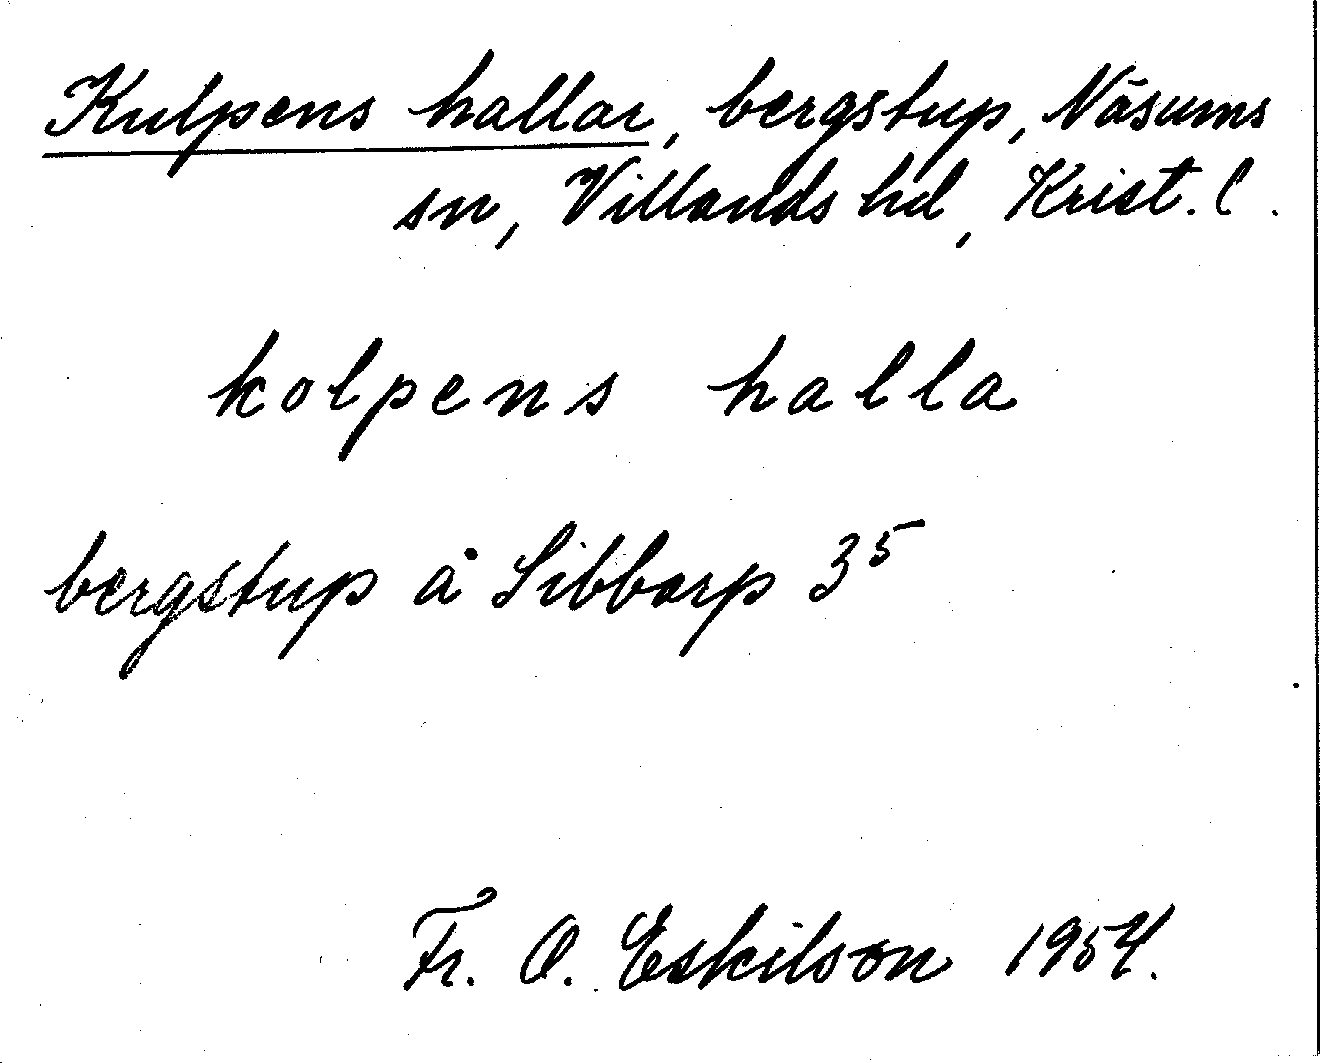 Kulpens hallar, bergstup, Näsums
sn, Villands hd, Krist. l.
kolpens halla
bergstup å Sibbarp 3⁵
Fr. O. Eskilson 1954.